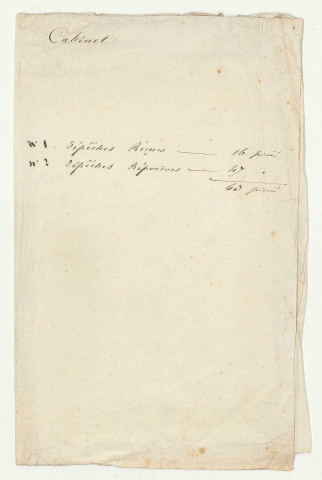 Cabinet
N° 1 - Dépêches Reçues — 16 pièces
N° 2 Dépêches Répondues — 47 "
63 pièces